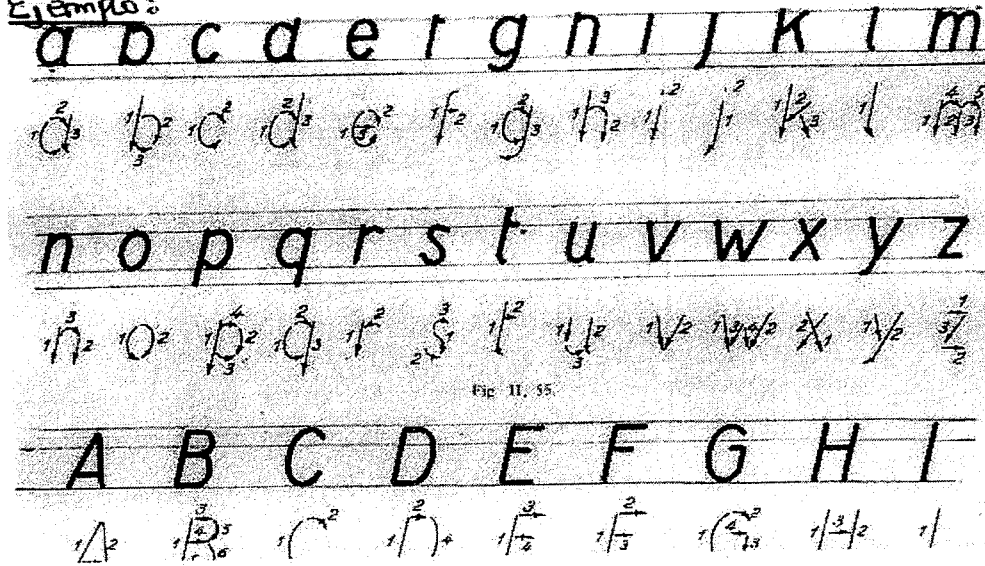 Ejemplo:
a b c d e f g h i j k l m
n o p q r s t u v w x y z
Fig II. 55.
A B C D E F G H I